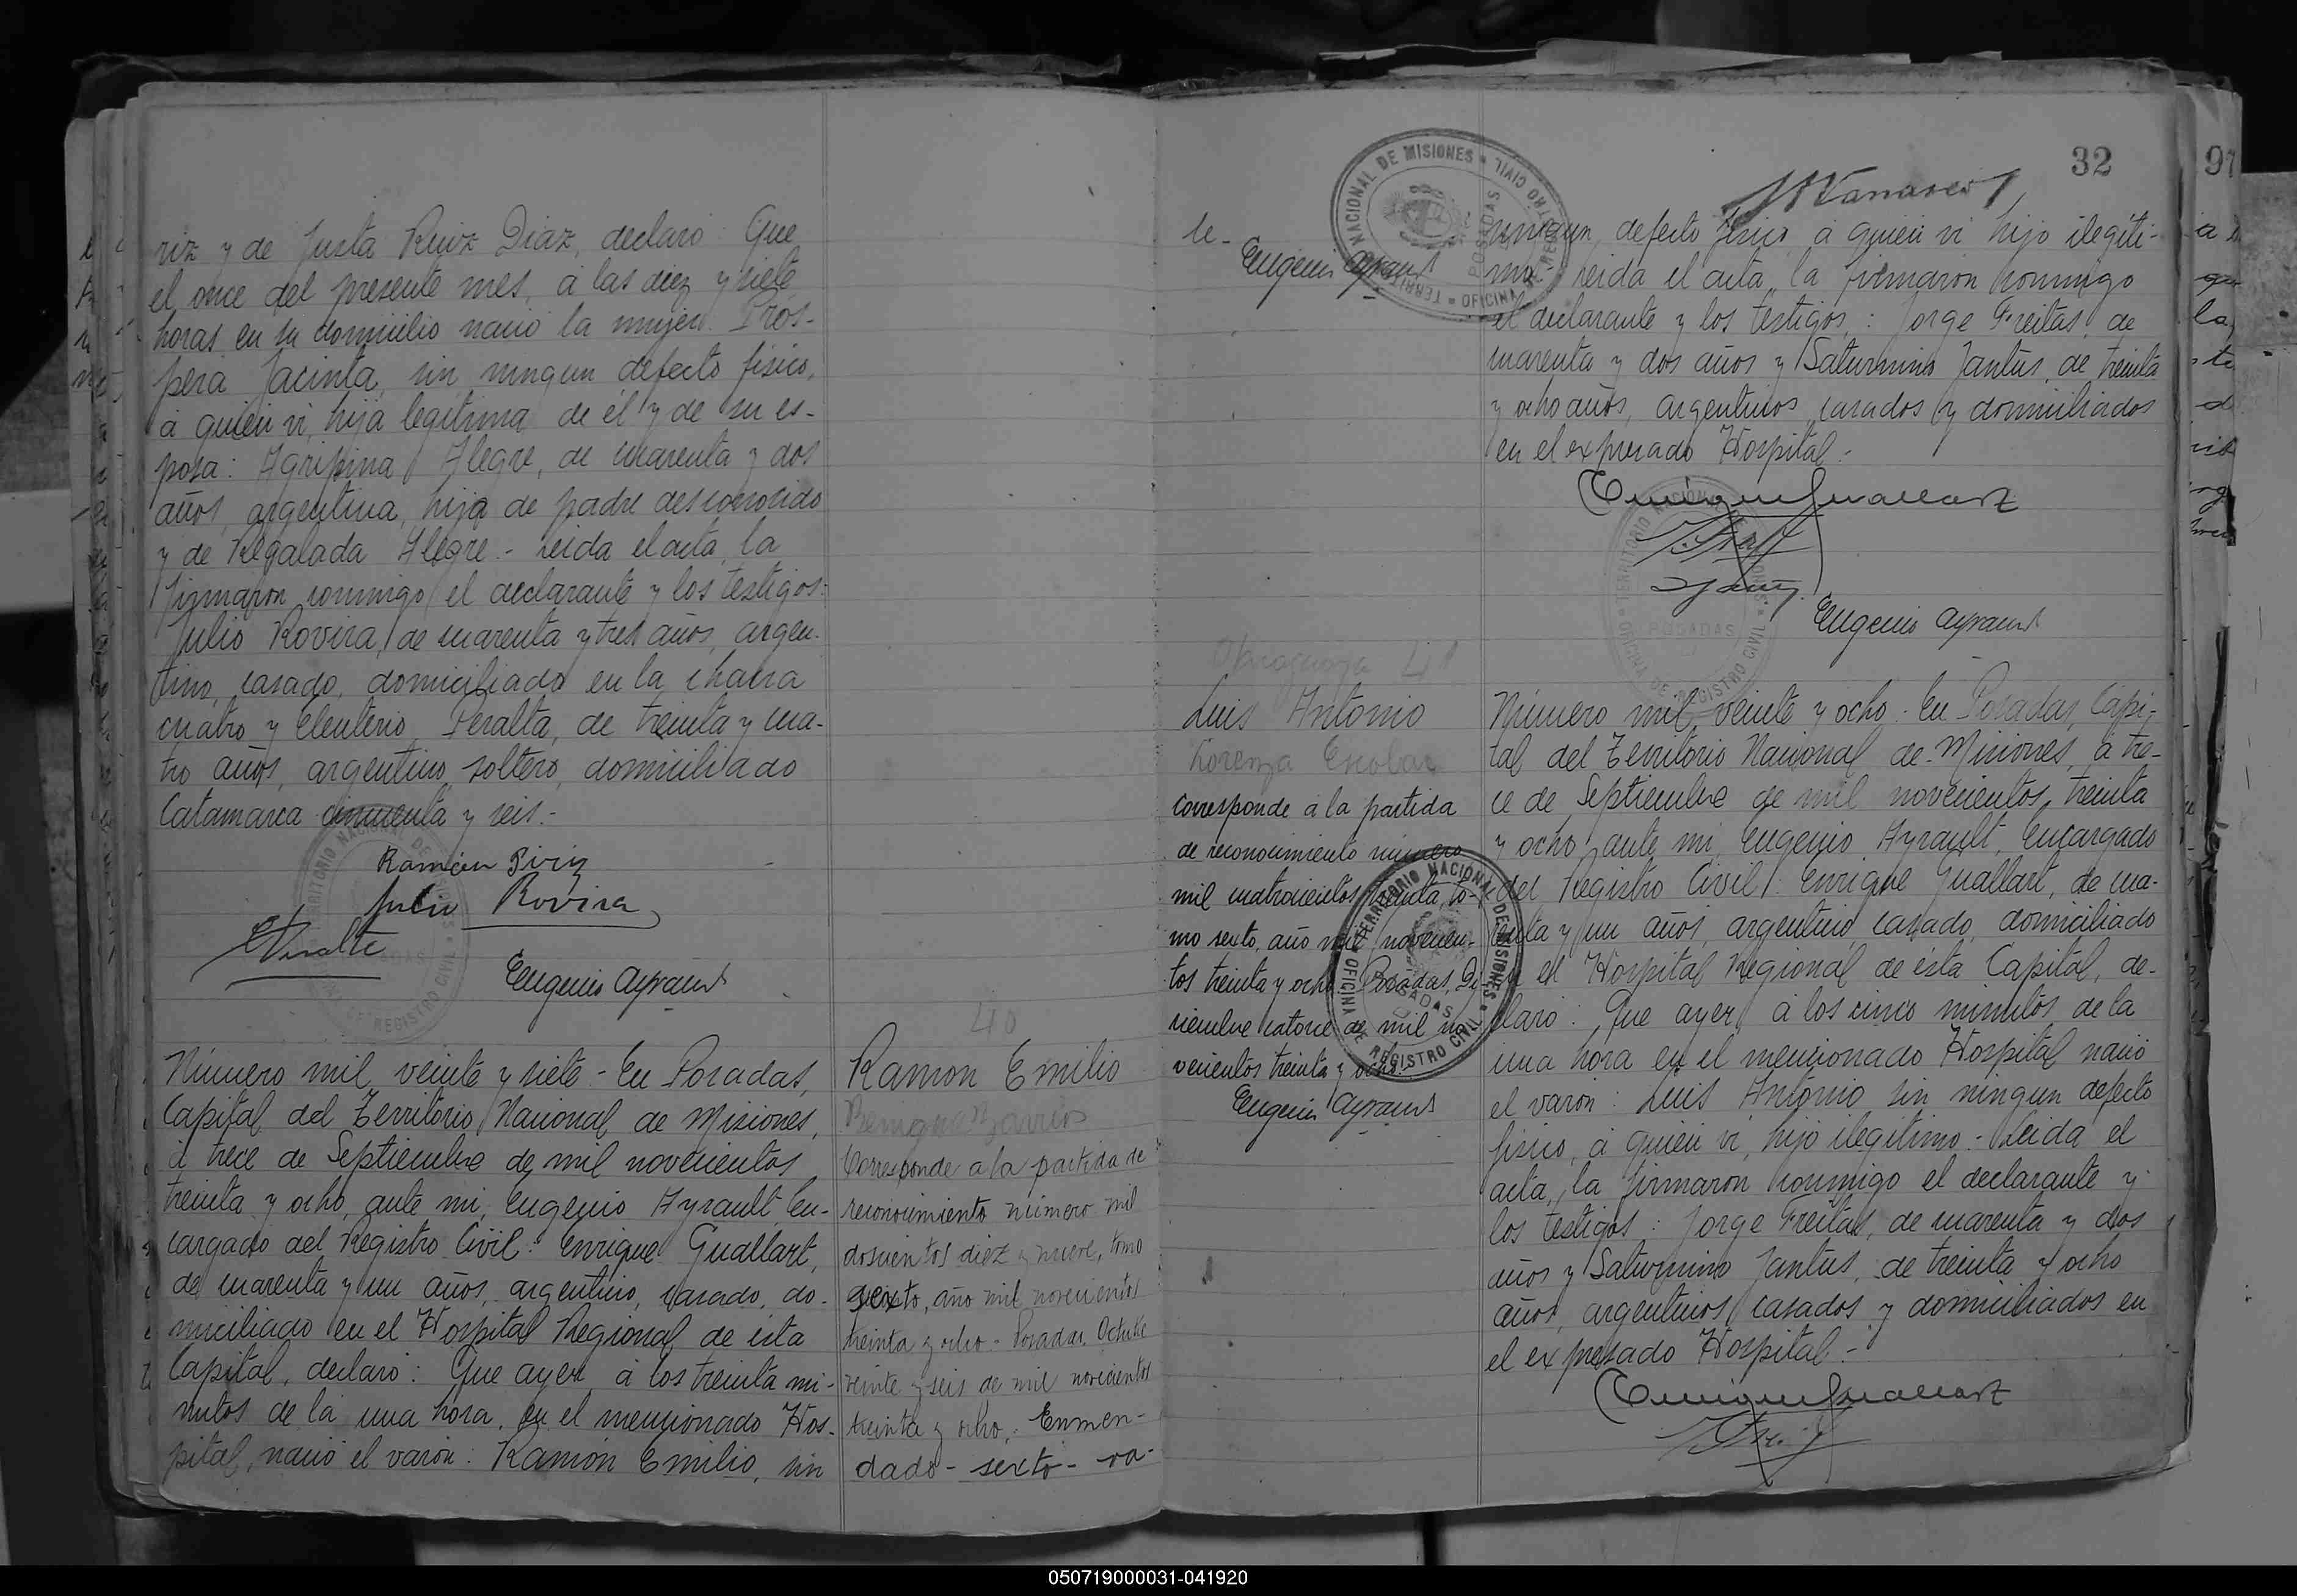 riz y de Justa Ruiz Diaz, declaró: Que
el once del presente mes, á las diez y siete
horas en su domicilio nació la mujer: Prós-
pera Jacinta, sin ningun defecto físico,
á quien vi, hija legítima de él y de su es-
posa: Agripina Alegre, de cuarenta y dos
años, argentina, hija de padre desconocido
y de Regalada Alegre.- Leida el acta, la
firmaron conmigo el declarante y los testigos:
Julio Rovira, de cuarenta y tres años, argen-
tino, casado, domiciliado en la chacra
cuatro y Eleuterio Peralta, de treinta y cua-
tro años, argentino, soltero, domiciliado
Catamarca cincuenta y seis.-
Ramón
Julio Rovira
EPeralta
Eugenio Ayrault
Número mil veinte y siete.- En Posadas,
Capital del Territorio Nacional de Misiones,
á trece de Septiembre de mil novecientos
treinta y ocho, ante mi, Eugenio Ayrault, En-
cargado del Registro Civil: Enrique Guallart,
de cuarenta y un años, argentino, casado, do-
miciliado en el Hospital Regional de ésta
Capital, declaró: Que ayer, á los treinta mi-
nutos de la una hora, en el mencionado Hos-
pital, nació el varón: Ramón Emilio, sin
40
Ramon Emilio
Benigna Barrios
Corresponde a la partida de
reconocimiento número mil
doscientos diez y nueve, tomo
sexto, año mil novecientos
treinta y ocho.- Posadas, Octubre
veinte y seis de mil novecientos
treinta y ocho,- Enmen-
dado- sexto- va-
32
97
le-
Eugenio Ayrault
TERRITORIO NACIONAL DE MISIONES
OFICINA DE REGISTRO CIVIL
POSADAS
ningun defecto físico, á quien vi, hijo ilegíti-
mo.- Leida el acta, la firmaron conmigo
el declarante y los testigos: Jorge Freitas, de
cuarenta y dos años y Saturnino Jantus, de treinta
y ocho años, argentinos, casados y domiciliados
en el expresado Hospital.-
Enrique Guallart
Eugenio Ayrault
41
Luis Antonio
Lorenza Escobar
Corresponde á la partida
de reconocimiento número
mil cuatrocientos treinta, to-
mo sexto, año mil novecien-
tos treinta y ocho. Posadas, Di-
ciembre catorce de mil no-
vecientos treinta y ocho.
Eugenio Ayrault
TERRITORIO NACIONAL DE MISIONES
OFICINA DE REGISTRO CIVIL
POSADAS
Número mil veinte y ocho.- En Posadas, Capi-
tal del Territorio Nacional de Misiones, á tre-
ce de Septiembre de mil novecientos treinta
y ocho, ante mi, Eugenio Ayrault, Encargado
del Registro Civil: Enrique Guallart, de cua-
renta y un años, argentino, casado, domiciliado
en el Hospital Regional de ésta Capital, de-
claró: Que ayer, á los cinco minutos de la
una hora en el mencionado Hospital nació
el varón: Luis Antonio, sin ningun defecto
físico, á quien vi, hijo ilegítimo.- Leida el
acta, la firmaron conmigo el declarante y
los testigos: Jorge Freitas, de cuarenta y dos
años y Saturnino Jantus, de treinta y ocho
años, argentinos, casados y domiciliados en
el expresado Hospital.-
Enrique Guallart
050719000031-041920